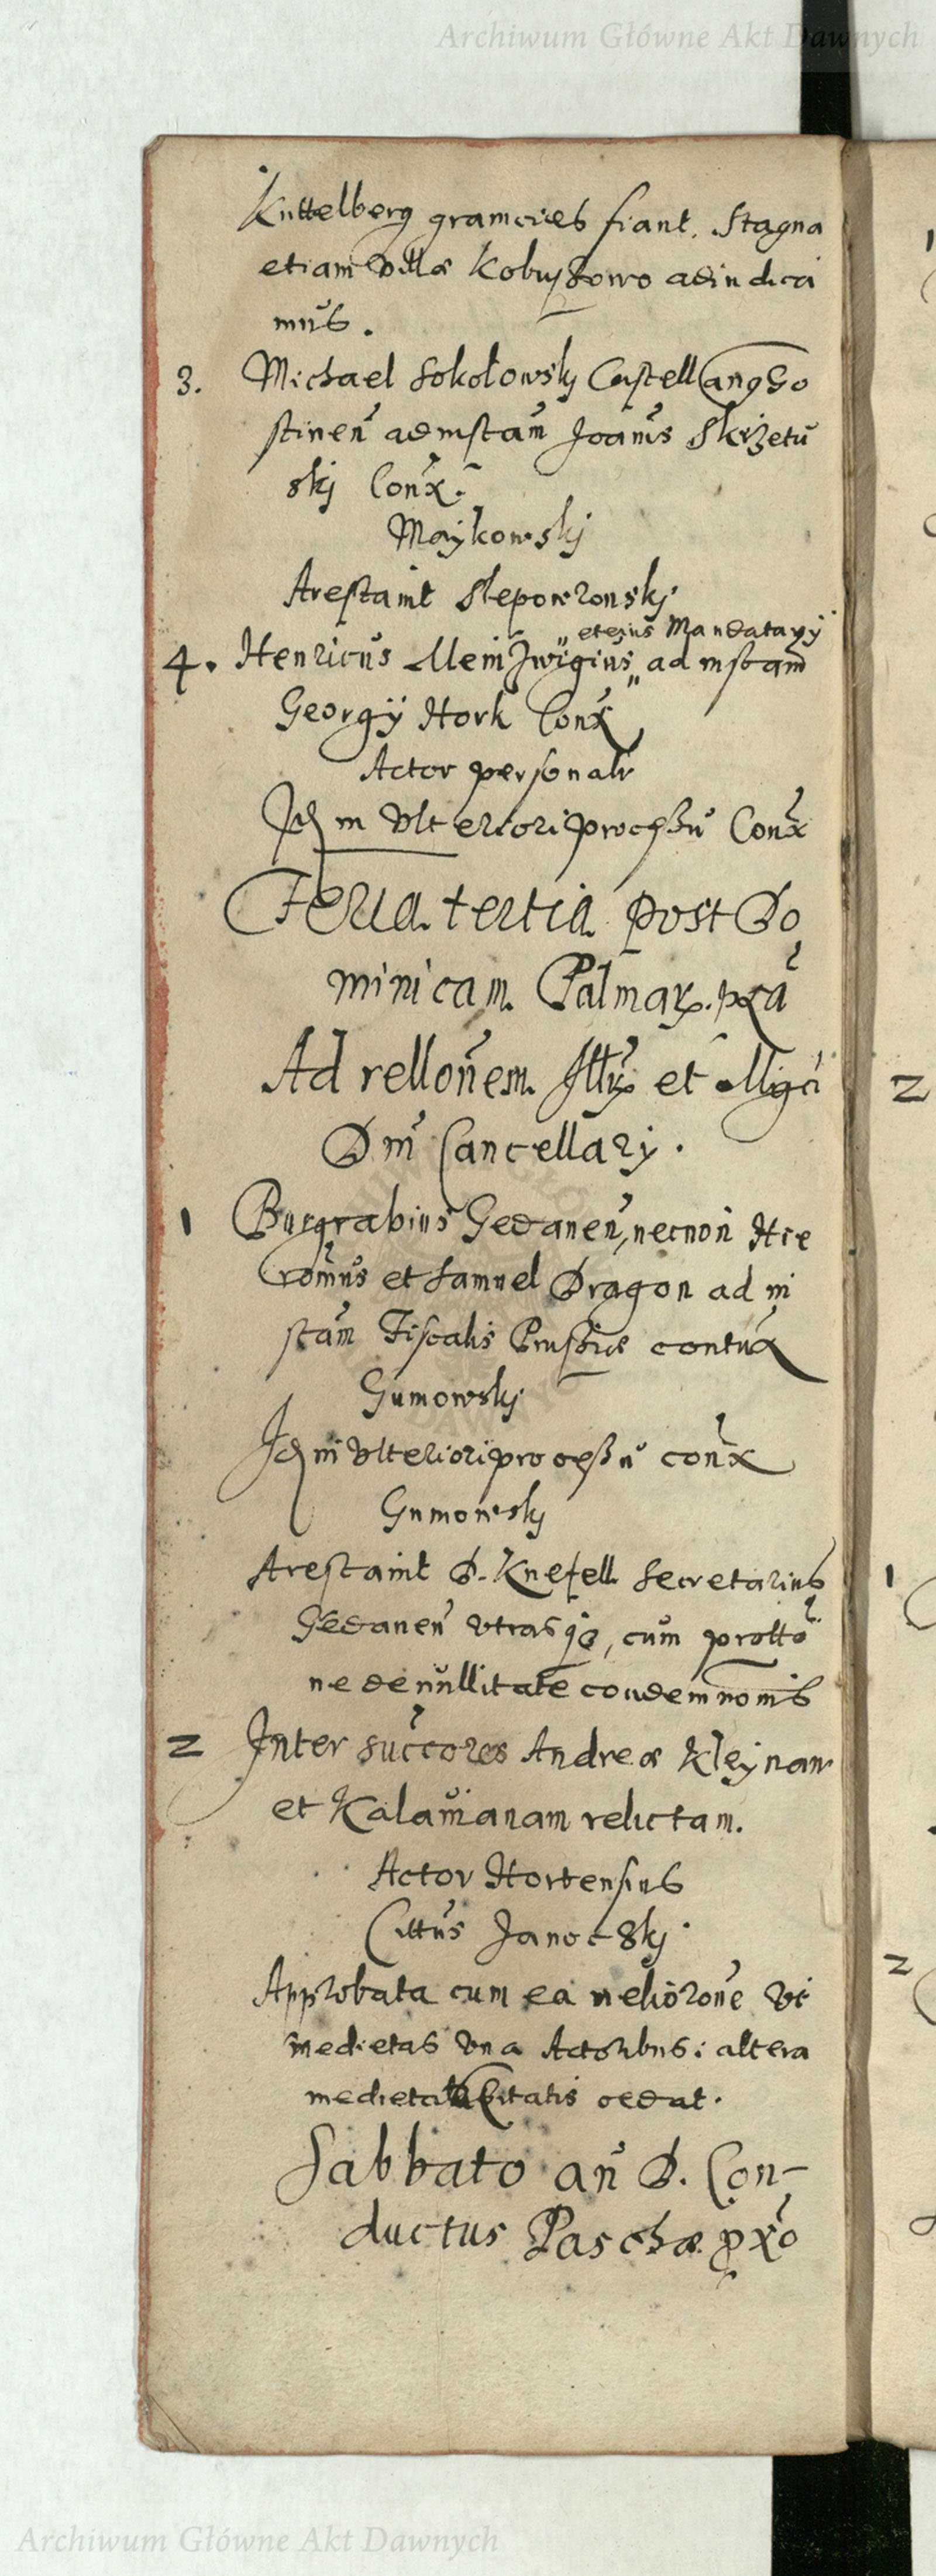 Archiwum Główne Akt Dawnych
Kuttelberg gramcies fiant. Stagna
etiam villæ Kobyszowo adiudica
mus.
3. Michael Sokołowsky Castellang Go
stinen̄ ad instan̄ Joanīs Skrzetu
skj Con̄x.
Maykowskj
Arestavit Slepowronskj
et eius Mandatarÿ
4. Henricus Mein Jwigius ad instan̄
Georgÿ Hork Con̄x
Actor personalr
Id in vlteriori processu Con̄x
Feria tertia post Do
minicam Palmar. pxa
Ad rellonem Illr et Mgci
Dni Cancellarÿ.
1 Burgrabius Gedanen̄, necnon Hie
romus et Samuel Dragon ad in
stan̄ Fiscalis Prussiæ contux
Gumowskj
Id in vlteriori processu con̄x
Gumowskj
Arestavit D. Knefell Secretarius
Gedanen̄ vtrasq3, cum protto
ne de nullitate condemnonis
2 Inter succores Andreæ Kleynaw
et Kalavianam relictam.
Actor Hortensius
Cittus Janoczskj
Approbata cum ea meliorone vt
medietas vna Actoribus: altera
medietas citatis cedat.
Sabbato an̄ D. Con-
ductus Paschæ pxo
2
1
2
Archiwum Główne Akt Dawnych